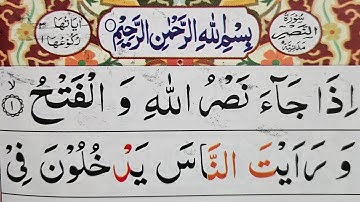 سُوْرَةُ النَّصْرِ مَدَنِيَّةٌ
بِسْمِ اللهِ الرَّحْمٰنِ الرَّحِيْمِ
اٰیَاتُهَا رُكُوْعُهَا
اِذَا جَآءَ نَصْرُ اللهِ وَ الْفَتْحُ ۙ۱
وَ رَاَیْتَ النَّاسَ یَدْخُلُوْنَ فِیْ